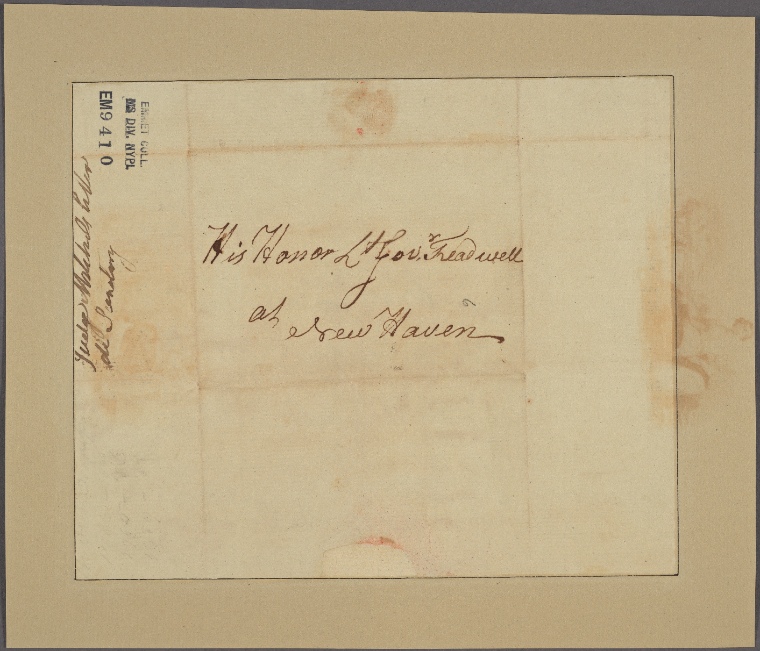 EMMET COLL.
MS DIV. NYPL
EM9410
Judge Mitchel's letter
His Honor Lt Govr. Treadwell
at
New Haven